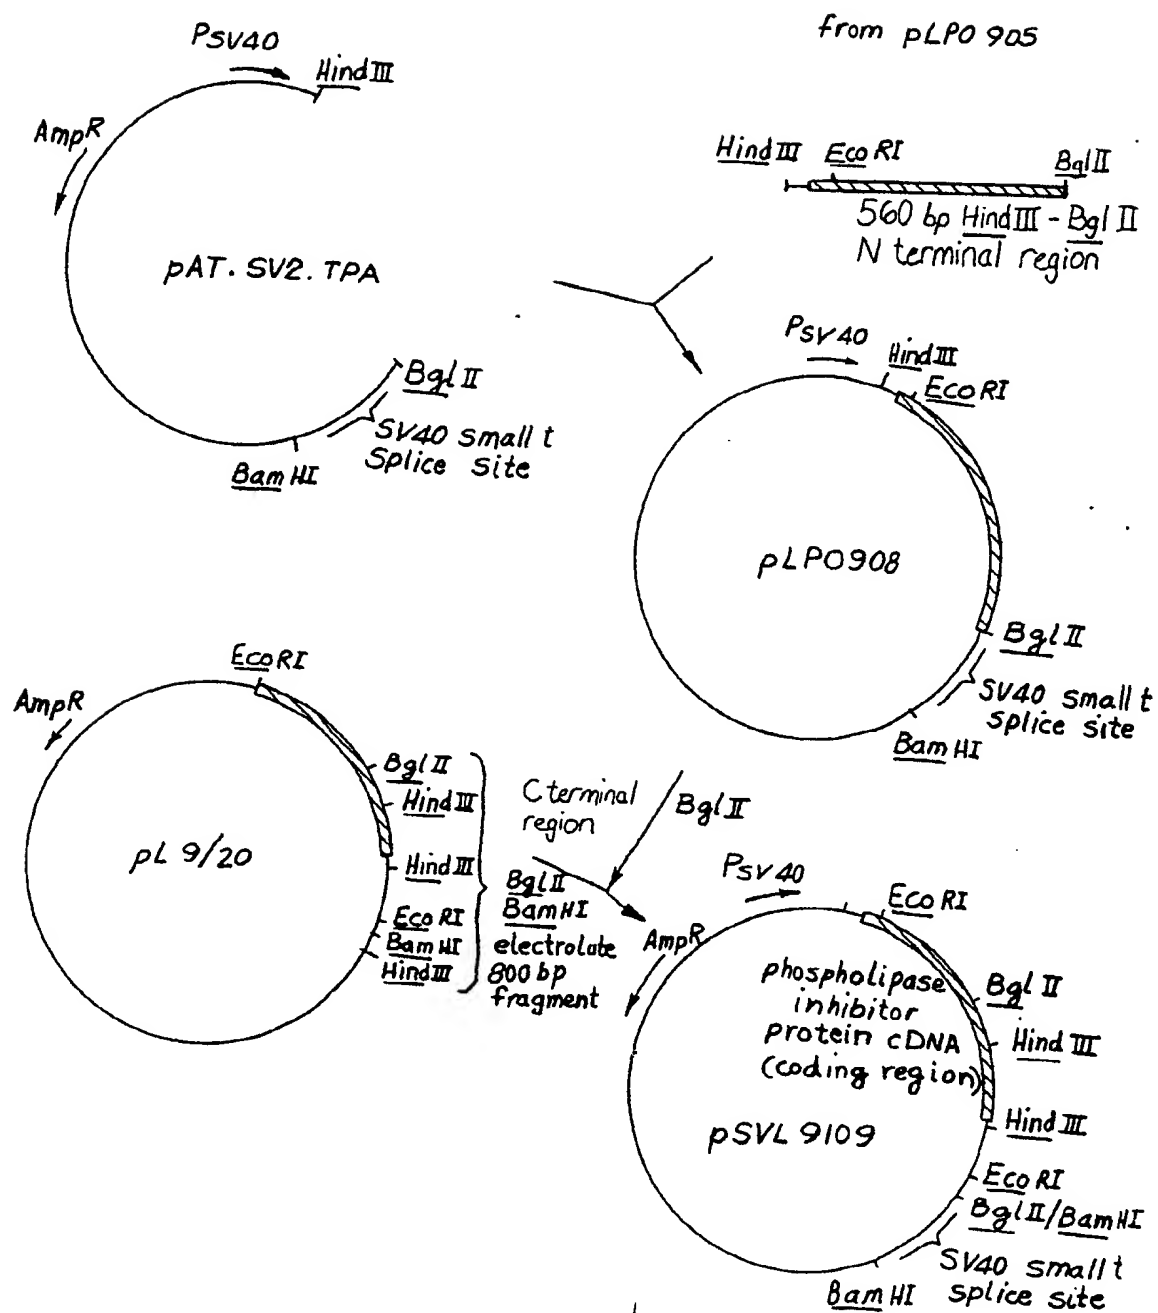 PSV40
HindIII
AmpR
pAT. SV2. TPA
BglII
SV40 small t
Splice site
BamHI
from pLPO 905
HindIII
EcoRI
BglII
560 bp HindIII - BglII
N terminal region
PSV40
HindIII
EcoRI
pLPO908
BglII
SV40 small t
splice site
BamHI
EcoRI
AmpR
BglII
HindIII
pL 9/20
HindIII
EcoRI
BamHI
HindIII
C terminal
region
BglII
BglII
BamHI
electrolate
800 bp
fragment
PSV40
EcoRI
AmpR
phospholipase
inhibitor
protein cDNA
(coding region)
BglII
HindIII
pSVL 9109
HindIII
EcoRI
BglII/BamHI
SV40 small t
splice site
BamHI